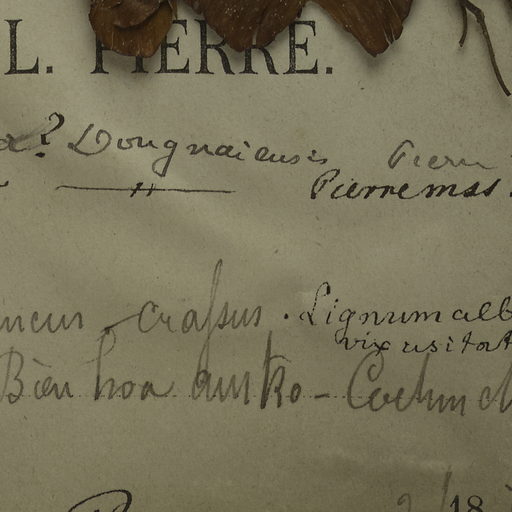 L. PIERRE.
a? Dongnaiensis Pierre
— " — Pierre mss.
crassus. Lignum alb
vix usitat
Bien hoa austro-Cochinch
18